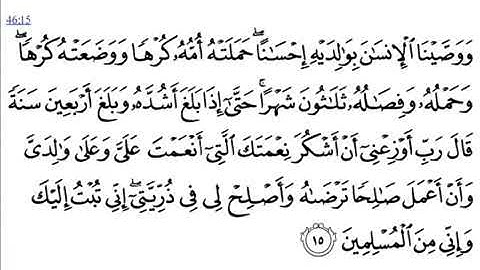 46:15
وَوَصَّيْنَا ٱلْإِنسَٰنَ بِوَٰلِدَيْهِ إِحْسَٰنًا ۖ حَمَلَتْهُ أُمُّهُۥ كُرْهًا وَوَضَعَتْهُ كُرْهًا ۖ
وَحَمْلُهُۥ وَفِصَٰلُهُۥ ثَلَٰثُونَ شَهْرًا ۚ حَتَّىٰٓ إِذَا بَلَغَ أَشُدَّهُۥ وَبَلَغَ أَرْبَعِينَ سَنَةً
قَالَ رَبِّ أَوْزِعْنِىٓ أَنْ أَشْكُرَ نِعْمَتَكَ ٱلَّتِىٓ أَنْعَمْتَ عَلَىَّ وَعَلَىٰ وَٰلِدَىَّ
وَأَنْ أَعْمَلَ صَٰلِحًا تَرْضَىٰهُ وَأَصْلِحْ لِى فِى ذُرِّيَّتِىٓ ۖ إِنِّى تُبْتُ إِلَيْكَ
وَإِنِّى مِنَ ٱلْمُسْلِمِينَ ١٥